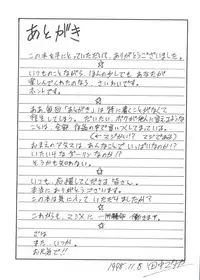 あとがき
この本を手にとっていただいて、ありがとうございました。
☆
いつものことながら、ほんの少しでも、あなたが
楽しんでくれたのなら、さいわいです。
ホントです。
☆
ああ毎回「あとがき」は特に書くことがなくて
往生してしまう。だいたい、ボクが他人に言えるような
ことは、全部 作品の中で言いつくしてまっている。
(←マジかい!? マジである)
おまえの下女は、あんなことでいっぱいなのか!?
いたいけなダーリンなのか!?
そうかも知れない。
☆
いつも、応援してくださる皆さん。
本当にありがとうございます。
この本は気に入っていただけましたか?
☆
これからも、ミラノxに一所懸命、働きます。
☆
では
また、いつか。
お元気で!!
1998.11.8